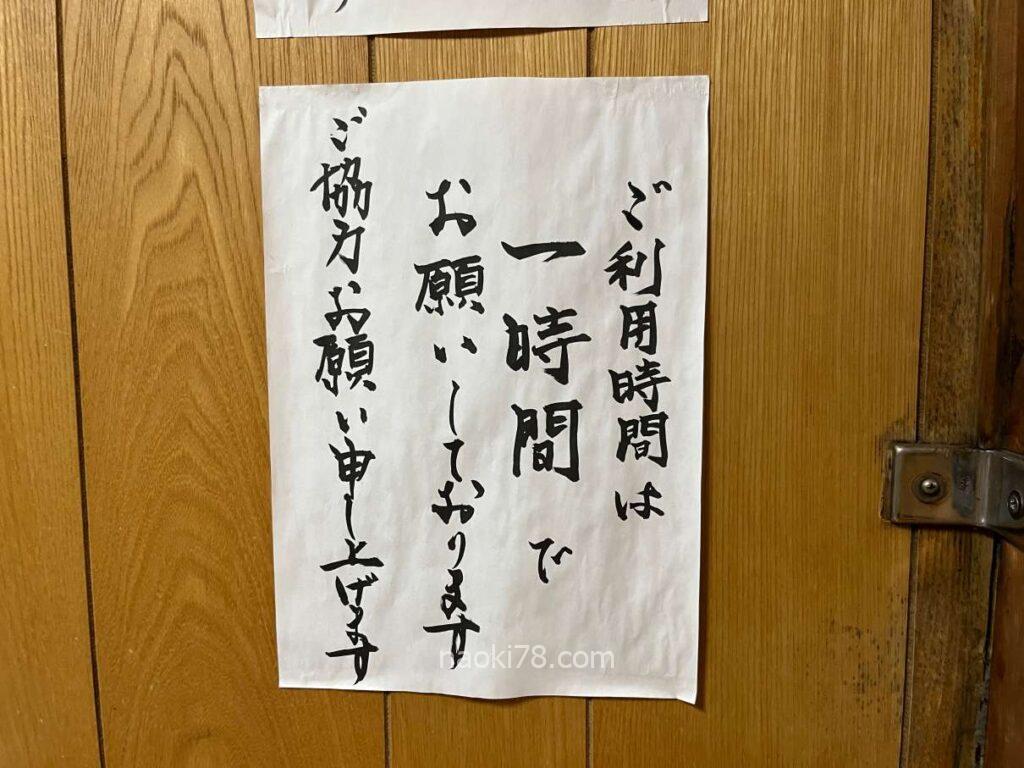 ご利用時間は
一時間で
お願いしております
ご協力お願い申し上げます
naoki78.com